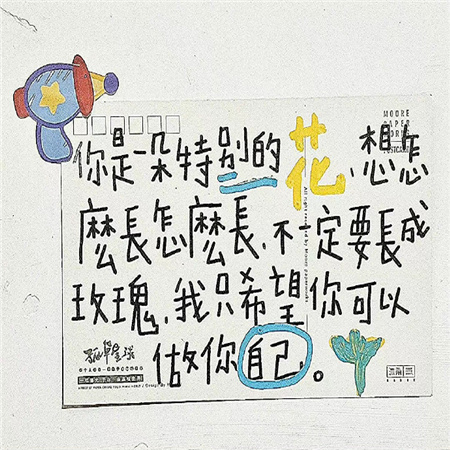 你是一朵特別的花,想怎
麼長怎麼長,不一定要長成
玫瑰,我只希望你可以
做你自己。
MOORE
PAPER
POSTCARD
All right reserved by Moore
孤單星球